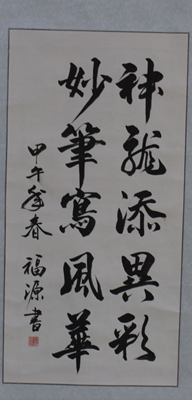 神龍添異彩
妙筆寫風華
甲午年春 福源書